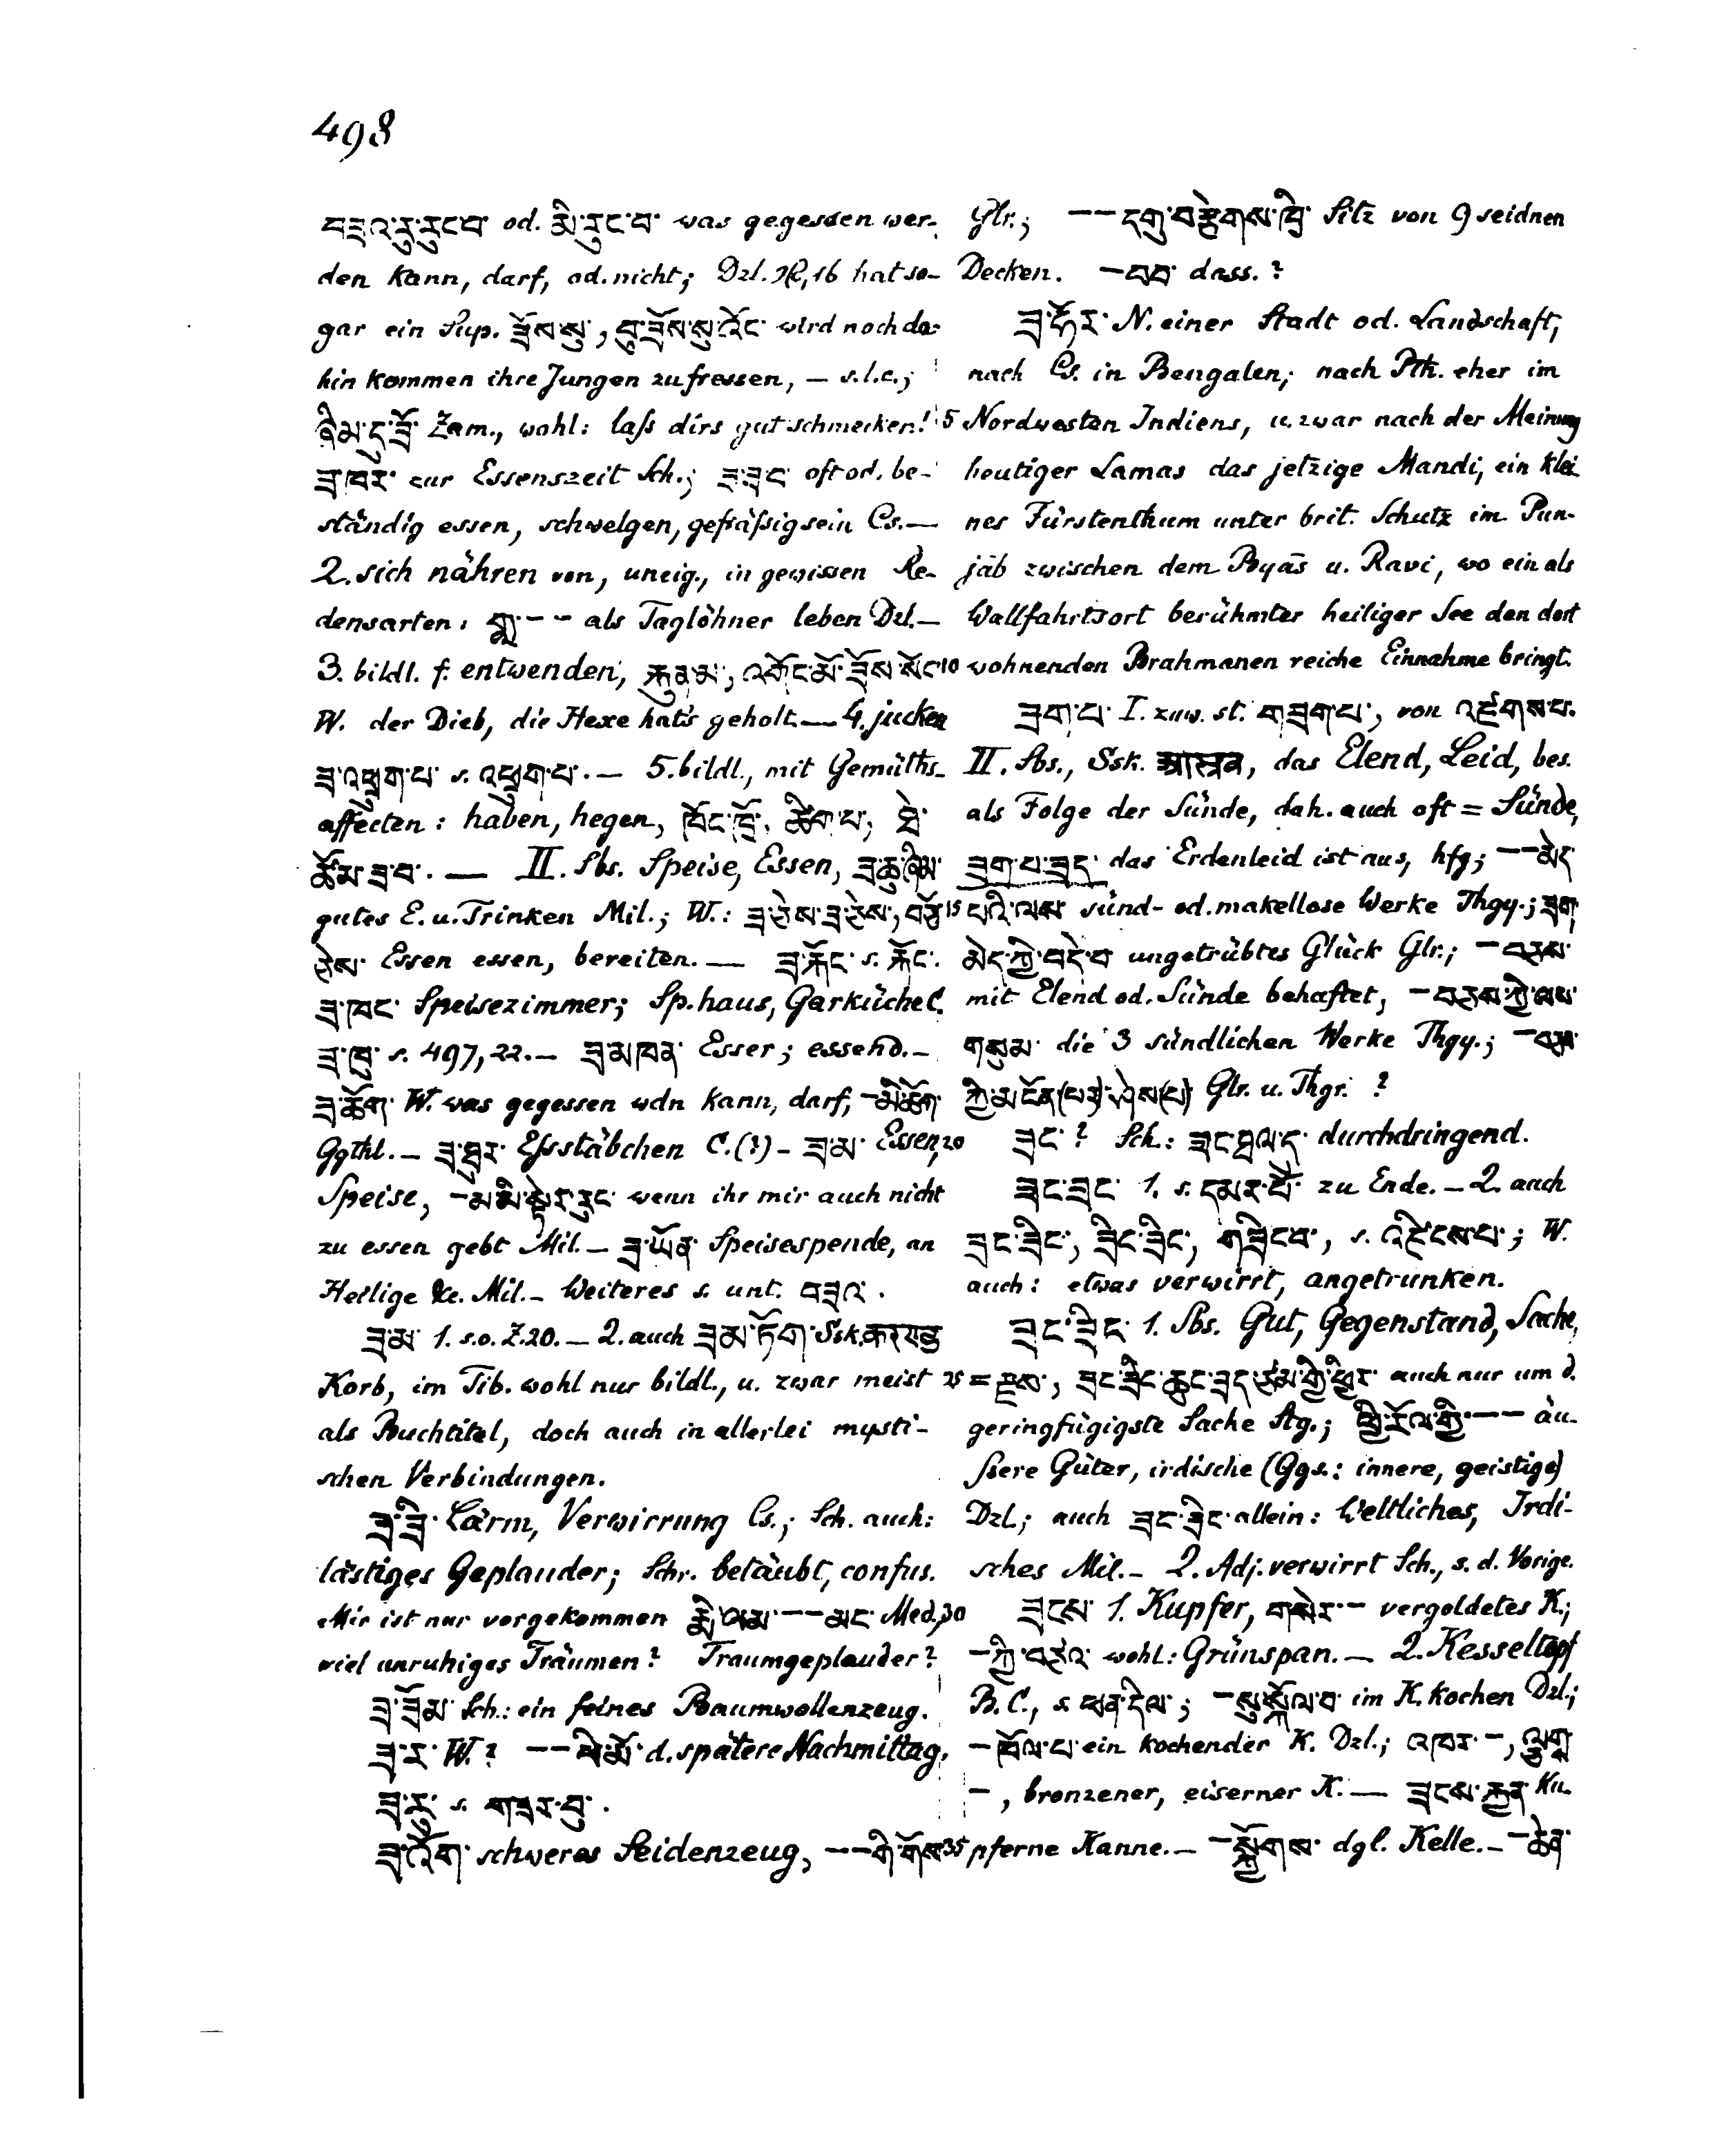 498
བཟའ་རུ་རུང་བ་ od. མི་རུང་བ་ was gegessen wer-
den kann, darf, od. nicht; Dzl. 16 hat so-
gar ein Sup. ཟོས་སུ་, བུ་ཟོས་སུ་འོང་ wird noch da-
hin kommen ihre Jungen zu fressen, — s.l.c.;
ཞིམ་དུ་ཟོ་ Zam., wohl: laſs dirs gut schmecken!
ཟ་ཁར་ zur Essenszeit Sch.; ཟ་ཟ་ང་ oft od. be-
ständig essen, schwelgen, gefräſsig sein Cs.—
2. sich nähren von, uneig., in gewissen Re-
densarten: གླ་ -- als Taglöhner leben Dzl.—
3. bildl. f. entwenden, རྐུན་མ་, འགོང་མོ་ཟོས་སོང་
W. der Dieb, die Hexe hat's geholt.— 4. jucken
ཟ་འཕྲུག་པ་ s. འཕྲུག་པ་.— 5. bildl., mit Gemüths-
affecten: haben, hegen, ཁོང་ཁྲོ་, ཚིག་པ་, ཐེ་
ཚོམ་ཟ་བ་.— II. Sbs. Speise, Essen, ཟ་ཆུ་ཞིམ་
gutes E. u. Trinken Mil.; W.: ཟ་ཅེས་ཟ་ཅེས་, བཅོ་
ཅེས་ Essen essen, bereiten.— ཟ་རྐོང་ s. རྐོང་.
ཟ་ཁང་ Speisezimmer; Sp.haus, Garküche C.
ཟ་ཁུ་ s. 497,22.— ཟ་མཁན་ Esser; essend.—
ཟ་ཆོག་ W. was gegessen wdn kann, darf, -མི་ཆོག་
Ggthl.— ཟ་ཐུར་ Eſsstäbchen C.(?)— ཟ་མ་ Essen,
Speise, -མ་མི་སྟེར་རུང་ wenn ihr mir auch nicht
zu essen gebt Mil.— ཟ་ཡོན་ Speisespende, an
Heilige &c. Mil.— Weiteres s. unt. བཟའ་.
ཟ་མ་ 1. s.o. Z.20.— 2. auch ཟ་མ་ཏོག་ Ssk. करण्ड
Korb, im Tib. wohl nur bildl., u. zwar meist
als Buchtitel, doch auch in allerlei mysti-
schen Verbindungen.
ཟ་ཟི་ Lärm, Verwirrung Cs.; Sch. auch:
lästiges Geplauder; Schr. betäubt, confus.
Mir ist nur vorgekommen རྨི་ལམ་ -- མང་ Med.,
viel unruhiges Träumen? Traumgeplauder?
ཟ་ཟོམ་ Sch.: ein feines Baumwollenzeug.
ཟ་ར་ W.? -- ཕི་མོ་ d. spätere Nachmittag.
ཟ་རུ་ s. གཟར་བུ་.
ཟ་འོག་ schweres Seidenzeug, -- གི་གོས་
Glr.; -- དགུ་བརྩེགས་ཁྲི་ Sitz von 9 seidnen
Decken. -བབ་ dass.?
ཟ་ཧོར་ N. einer Stadt od. Landschaft,
nach Cs. in Bengalen; nach Pth. eher im
5 Nordwesten Indiens, u. zwar nach der Meinung
heutiger Lamas das jetzige Mandi, ein klei-
nes Fürstenthum unter brit. Schutz im Pun-
jāb zwischen dem Byās u. Ravi, wo ein als
Wallfahrtsort berühmter heiliger See den dort
10 wohnenden Brahmanen reiche Einnahme bringt.
ཟག་པ་ I. zuw. st. གཟག་པ་, von འཛགས་པ་.
II. Sbs., Ssk. आस्रव, das Elend, Leid, bes.
als Folge der Sünde, dah. auch oft = Sünde,
ཟག་པ་ཟད་ das Erdenleid ist aus, hfg; -- མེད་
15 པའི་ལས་ sünd- od. makellose Werke Thgy.; ཟག་
མེད་ཀྱི་བདེ་བ་ ungetrübtes Glück Glr.; -བཅས་
mit Elend od. Sünde behaftet, -བཅས་ཀྱི་ལས་
གསུམ་ die 3 sündlichen Werke Thgy.; -བཅས་
ཀྱི་མངོན་(པར་)ཤེས་(པ) Glr. u. Thgr.?
20 ཟང་? Sch.: ཟང་ཐལ་དུ་ durchdringend.
ཟང་ཟང་ 1. s. དམར་པོ་ zu Ende.— 2. auch
ཟང་ཟིང་, ཟིང་ཟིང་, གཟིངབ་, s. འཛིངས་པ་; W.
auch: etwas verwirrt, angetrunken.
ཟང་ཟིང་ 1. Sbs. Gut, Gegenstand, Sache,
25 = རྫས་, ཟང་ཟིང་ཆུང་ཟད་ཙམ་གྱི་ཕྱིར་ auch nur um d.
geringfügigste Sache Stg.; ཕྱི་རོལ་གྱི་ -- äu-
ſsere Güter, irdische (Ggs.: innere, geistige)
Dzl.; auch ཟང་ཟིང་ allein: Weltliches, Irdi-
sches Mil.— 2. Adj. verwirrt Sch., s. d. Vorige.
30 ཟངས་ 1. Kupfer, གསེར་- vergoldetes K.;
-ཀྱི་བཙའ་ wohl: Grünspan.— 2. Kesseltopf
B.C., s. ཕན་དིལ་; -སུ་སྐོལ་བ་ im K. kochen Dzl.;
-ཁོལ་པ་ ein kochender K. Dzl.; འཁར་-, ལྕགས་
-, bronzener, eiserner K.— ཟངས་རྐྱན་ Ku-
35 pferne Kanne.— -སྐྱོགས་ dgl. Kelle.— -ཆེན་